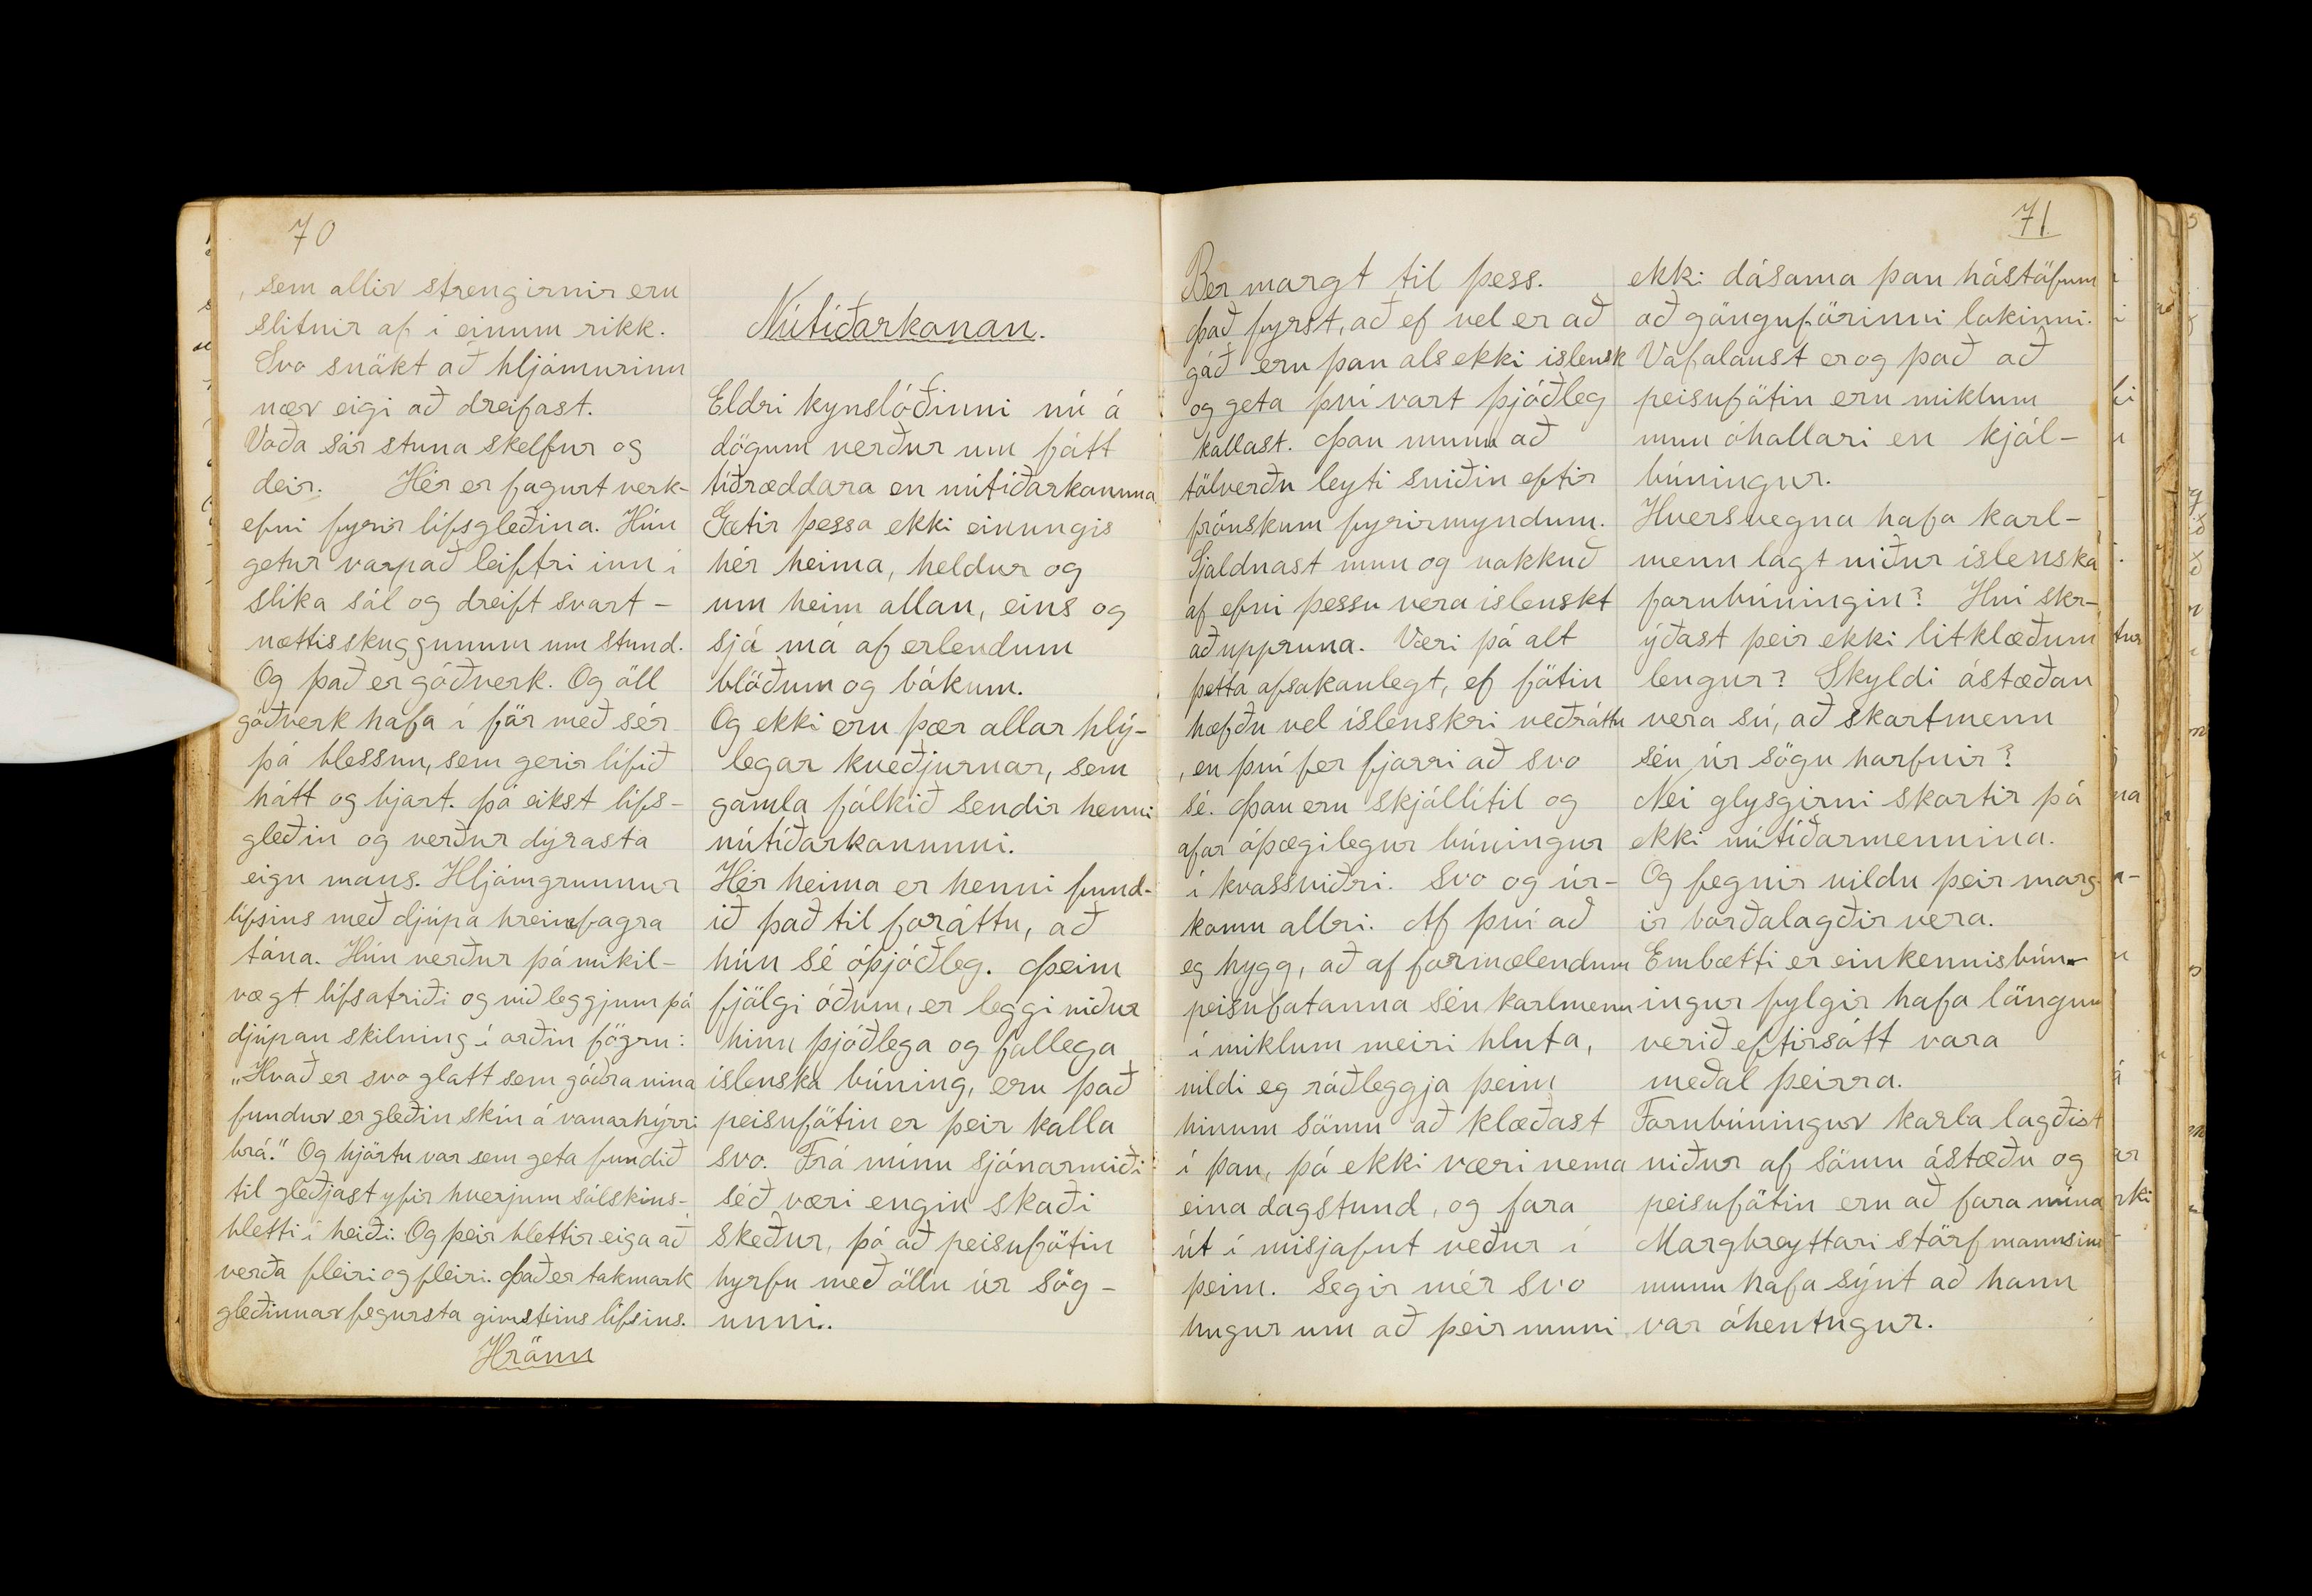 70
, sem allir strengirnir eru
slitnir af í einum rikk.
Svo snökt að hljómurinn
nær eigi að dreifast.
Voða sár stuna skelfur og
deir. Hér er fagurt verk-
efni fyrir lífsgleðina. Hún
getur varpað leiftri inn í
slíka sál og dreift svart-
nættisskuggunum um stund.
Og það er góðverk. Og öll
góðverk hafa í för með sér
þá blessun, sem gerir lífið
hátt og bjart. Þá eikst lífs-
gleðin og verður dýrasta
eign mans. Hljómgrunnur
lífsins með djúpa hreinfagra
tóna. Hún verður þá mikil-
vægt lífsatriði og við leggjum þá
djúpan skilning í orðin fögru:
„Hvað er svo glatt sem góðra vina
fundur er gleðin skín á vonarhýrri
brá." Og hjörtu vor sem geta fundið
til gleðjast yfir hverjum sólskins-
bletti í heiði. Og þeir blettir eiga að
verða fleiri og fleiri. Það er takmark
gleðinnar fegursta gimsteins lífsins.
Hrönn
Nútíðarkonan.
Eldri kynslóðinni nú á
dögum verður um fátt
tíðræddara en nútíðarkonuna
Gætir þessa ekki einungis
hér heima, heldur og
um heim allan, eins og
sjá má af erlendum
blöðum og bókum.
Og ekki eru þær allar hlý-
legar kveðjurnar, sem
gamla fólkið sendir henni
nútíðarkonunni.
Hér heima er henni fund-
ið það til foráttu, að
hún sé óþjóðleg. Þeim
fjölgi óðum, er leggi niður
hinn þjóðlega og fallega
íslenska búning, eru það
peisufötin er þeir kalla
svo. Frá mínu sjónarmiði
séð væri engin skaði
skeður, þó að peisufötin
hyrfu með öllu úr sög-
unni..
71
Ber margt til þess.
Það fyrst, að ef vel er að
gáð eru þau als ekki íslensk
og geta því vart þjóðleg
kallast. Þau munu að
tölverðu leyti sniðin eftir
frönskum fyrirmyndum.
Sjaldnast mun og nokkuð
af efni þessu vera íslenskt
að uppruna. Væri þó alt
þetta afsakanlegt, ef fötin
hæfðu vel íslenskri veðráttu
, en því fer fjarri að svo
sé. Þau eru skjóllítil og
afar óþægilegur búningur
í kvassviðri. Svo og úr-
komu allri. Af því að
eg hygg, að af formælendum
peisufatanna séu karlmenn
í miklum meiri hluta,
vildi eg ráðleggja þeim
hinum sömu að klæðast
í þau, þó ekki væri nema
eina dagstund, og fara
út í misjafnt veður í
þeim. Segir mér svo
hugur um að þeir muni
ekki dásama þau hástöfum
að gönguförinni lokinni.
Vafalaust er og það að
peisufötin eru miklum
mun óhollari en kjól-
búningur.
Hversvegna hafa karl-
menn lagt niður íslenska
fornbúningin? Hví skr-
ýðast þeir ekki litklæðum
lengur? Skyldi ástæðan
vera sú, að skartmenn
séu úr sögu horfnir?
Nei glysgirni skortir þá
ekki nútíðarmennina.
Og fegnir vildu þeir marg-
ir borðalagðir vera.
Embætti er einkennisbún-
ingur fylgir hafa löngum
verið eftirsótt vara
meðal þeirra.
Fornbúningur karla lagðist
niður af sömu ástæðu og
peisufötin eru að fara núna
Margbreyttari störf mannsins
munu hafa sýnt að hann
var óhentugur.